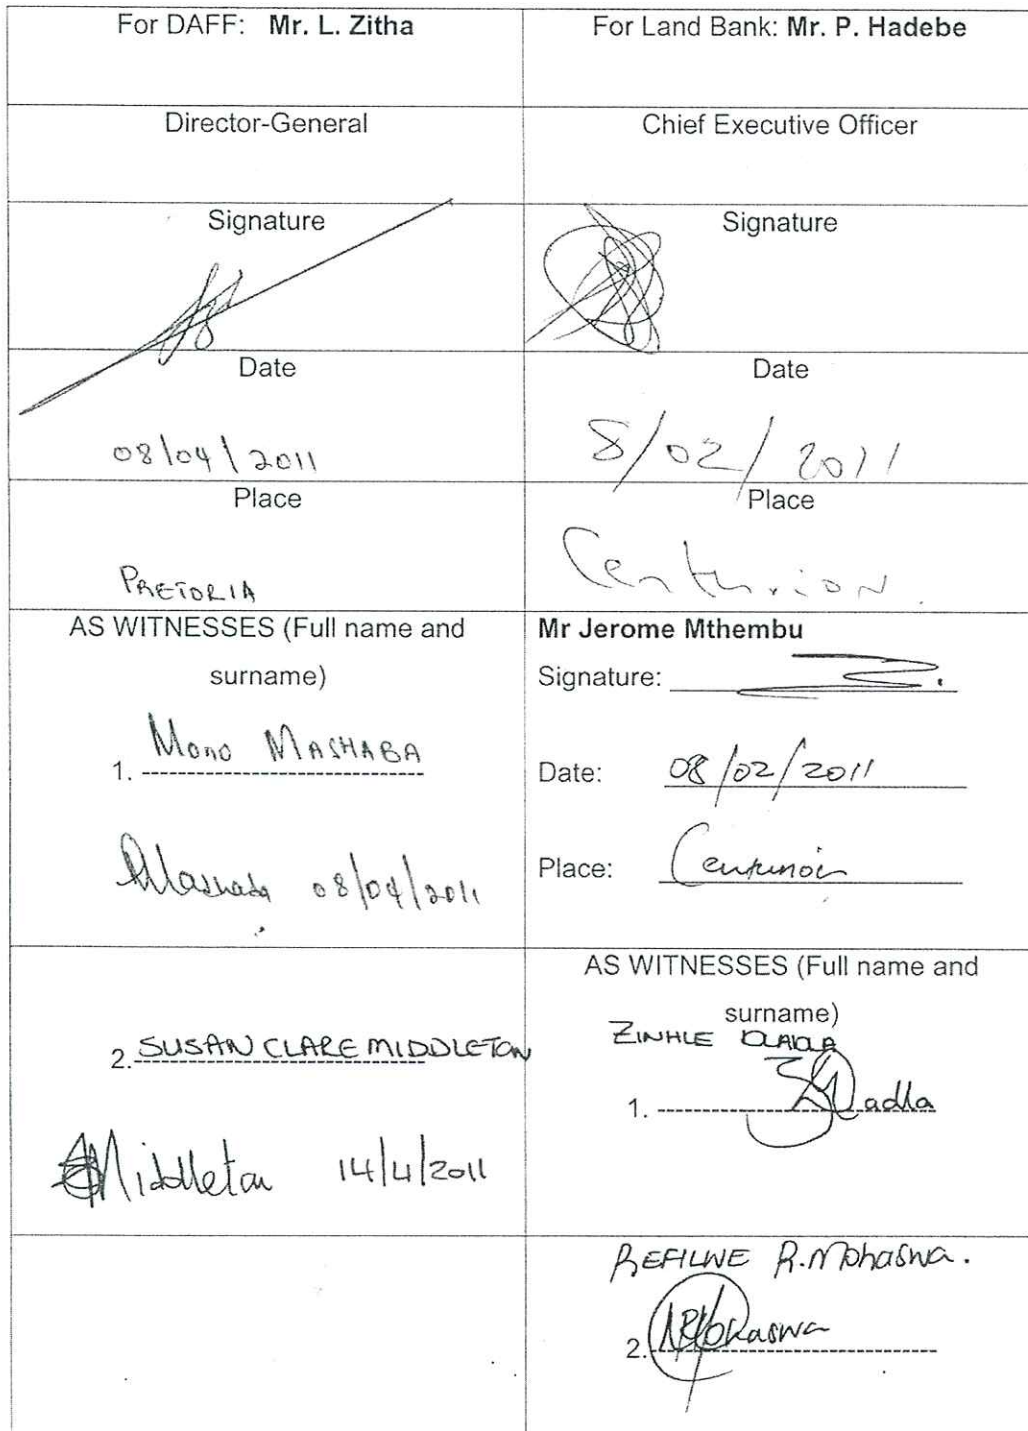 For DAFF: Mr. L. Zitha
For Land Bank: Mr. P. Hadebe
Director-General
Chief Executive Officer
Signature
Signature
Date
08/04/2011
Date
8/02/2011
Place
PRETORIA
Place
Centurion.
AS WITNESSES (Full name and
surname)
1. MASHABA
08/04/2011
Mr Jerome Mthembu
Signature:
Date: 08/02/2011
Place: Centurion
2. SUSAN CLARE MIDDLETON
Middleton 14/4/2011
AS WITNESSES (Full name and
surname)
ZINHLE DLADLA
1. Dladla
REFILWE R. Mohaswa.
2. Mohaswa